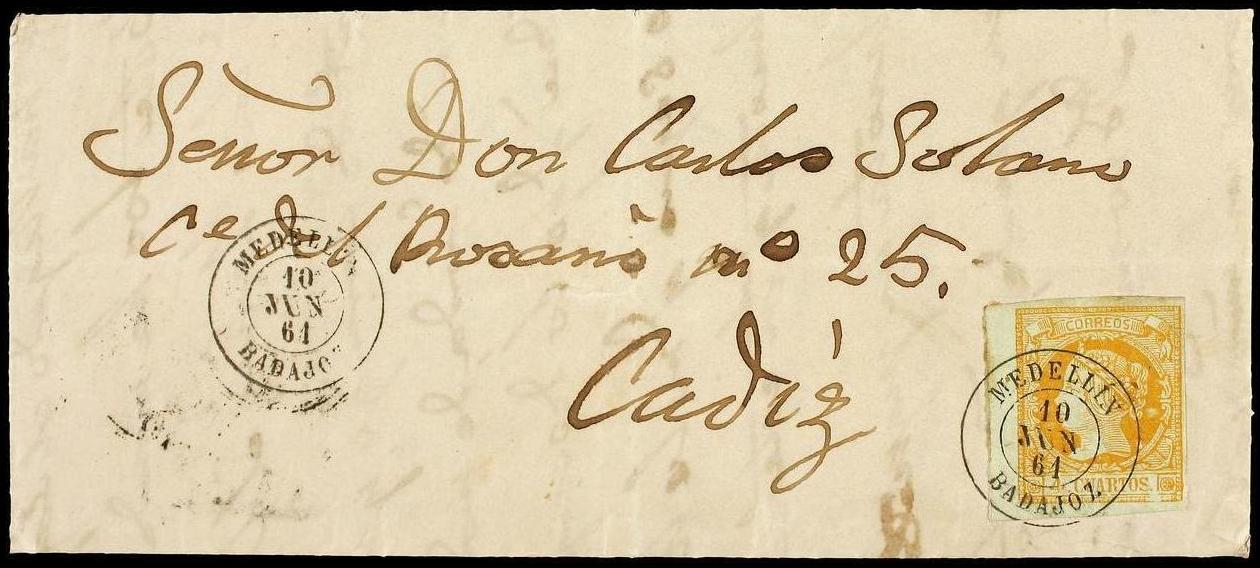 Señor Don Carlos Solano
Ce del Rosario nº 25.
Cadiz
MEDELLIN
10
JUN
61
BADAJOZ
CORREOS
MEDELLIN
10
JUN
61
BADAJOZ
CUARTOS.